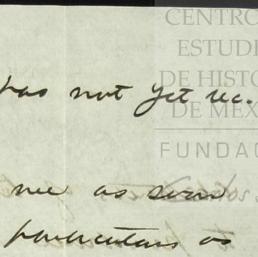 CENTRO
ESTUDI
DE HISTO
DE MÉX
FUNDAC
has not yet rec.
me as soon
particulars as